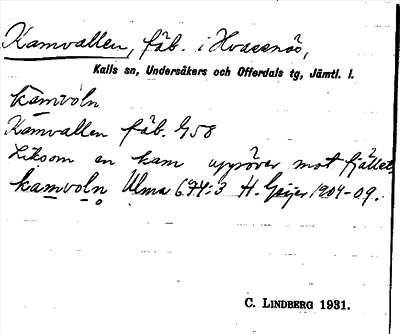 Kamvallen, fäb. i Huvsnäs,
Kalls sn, Undersåkers och Offerdals tg, Jämtl. l.
kamvoln
Kamvallen fäb. G58
Liksom en kam uppöver mot fjället
kamvoln Ulma 674:3 H. Geijer 1904-09.
C. LINDBERG 1931.